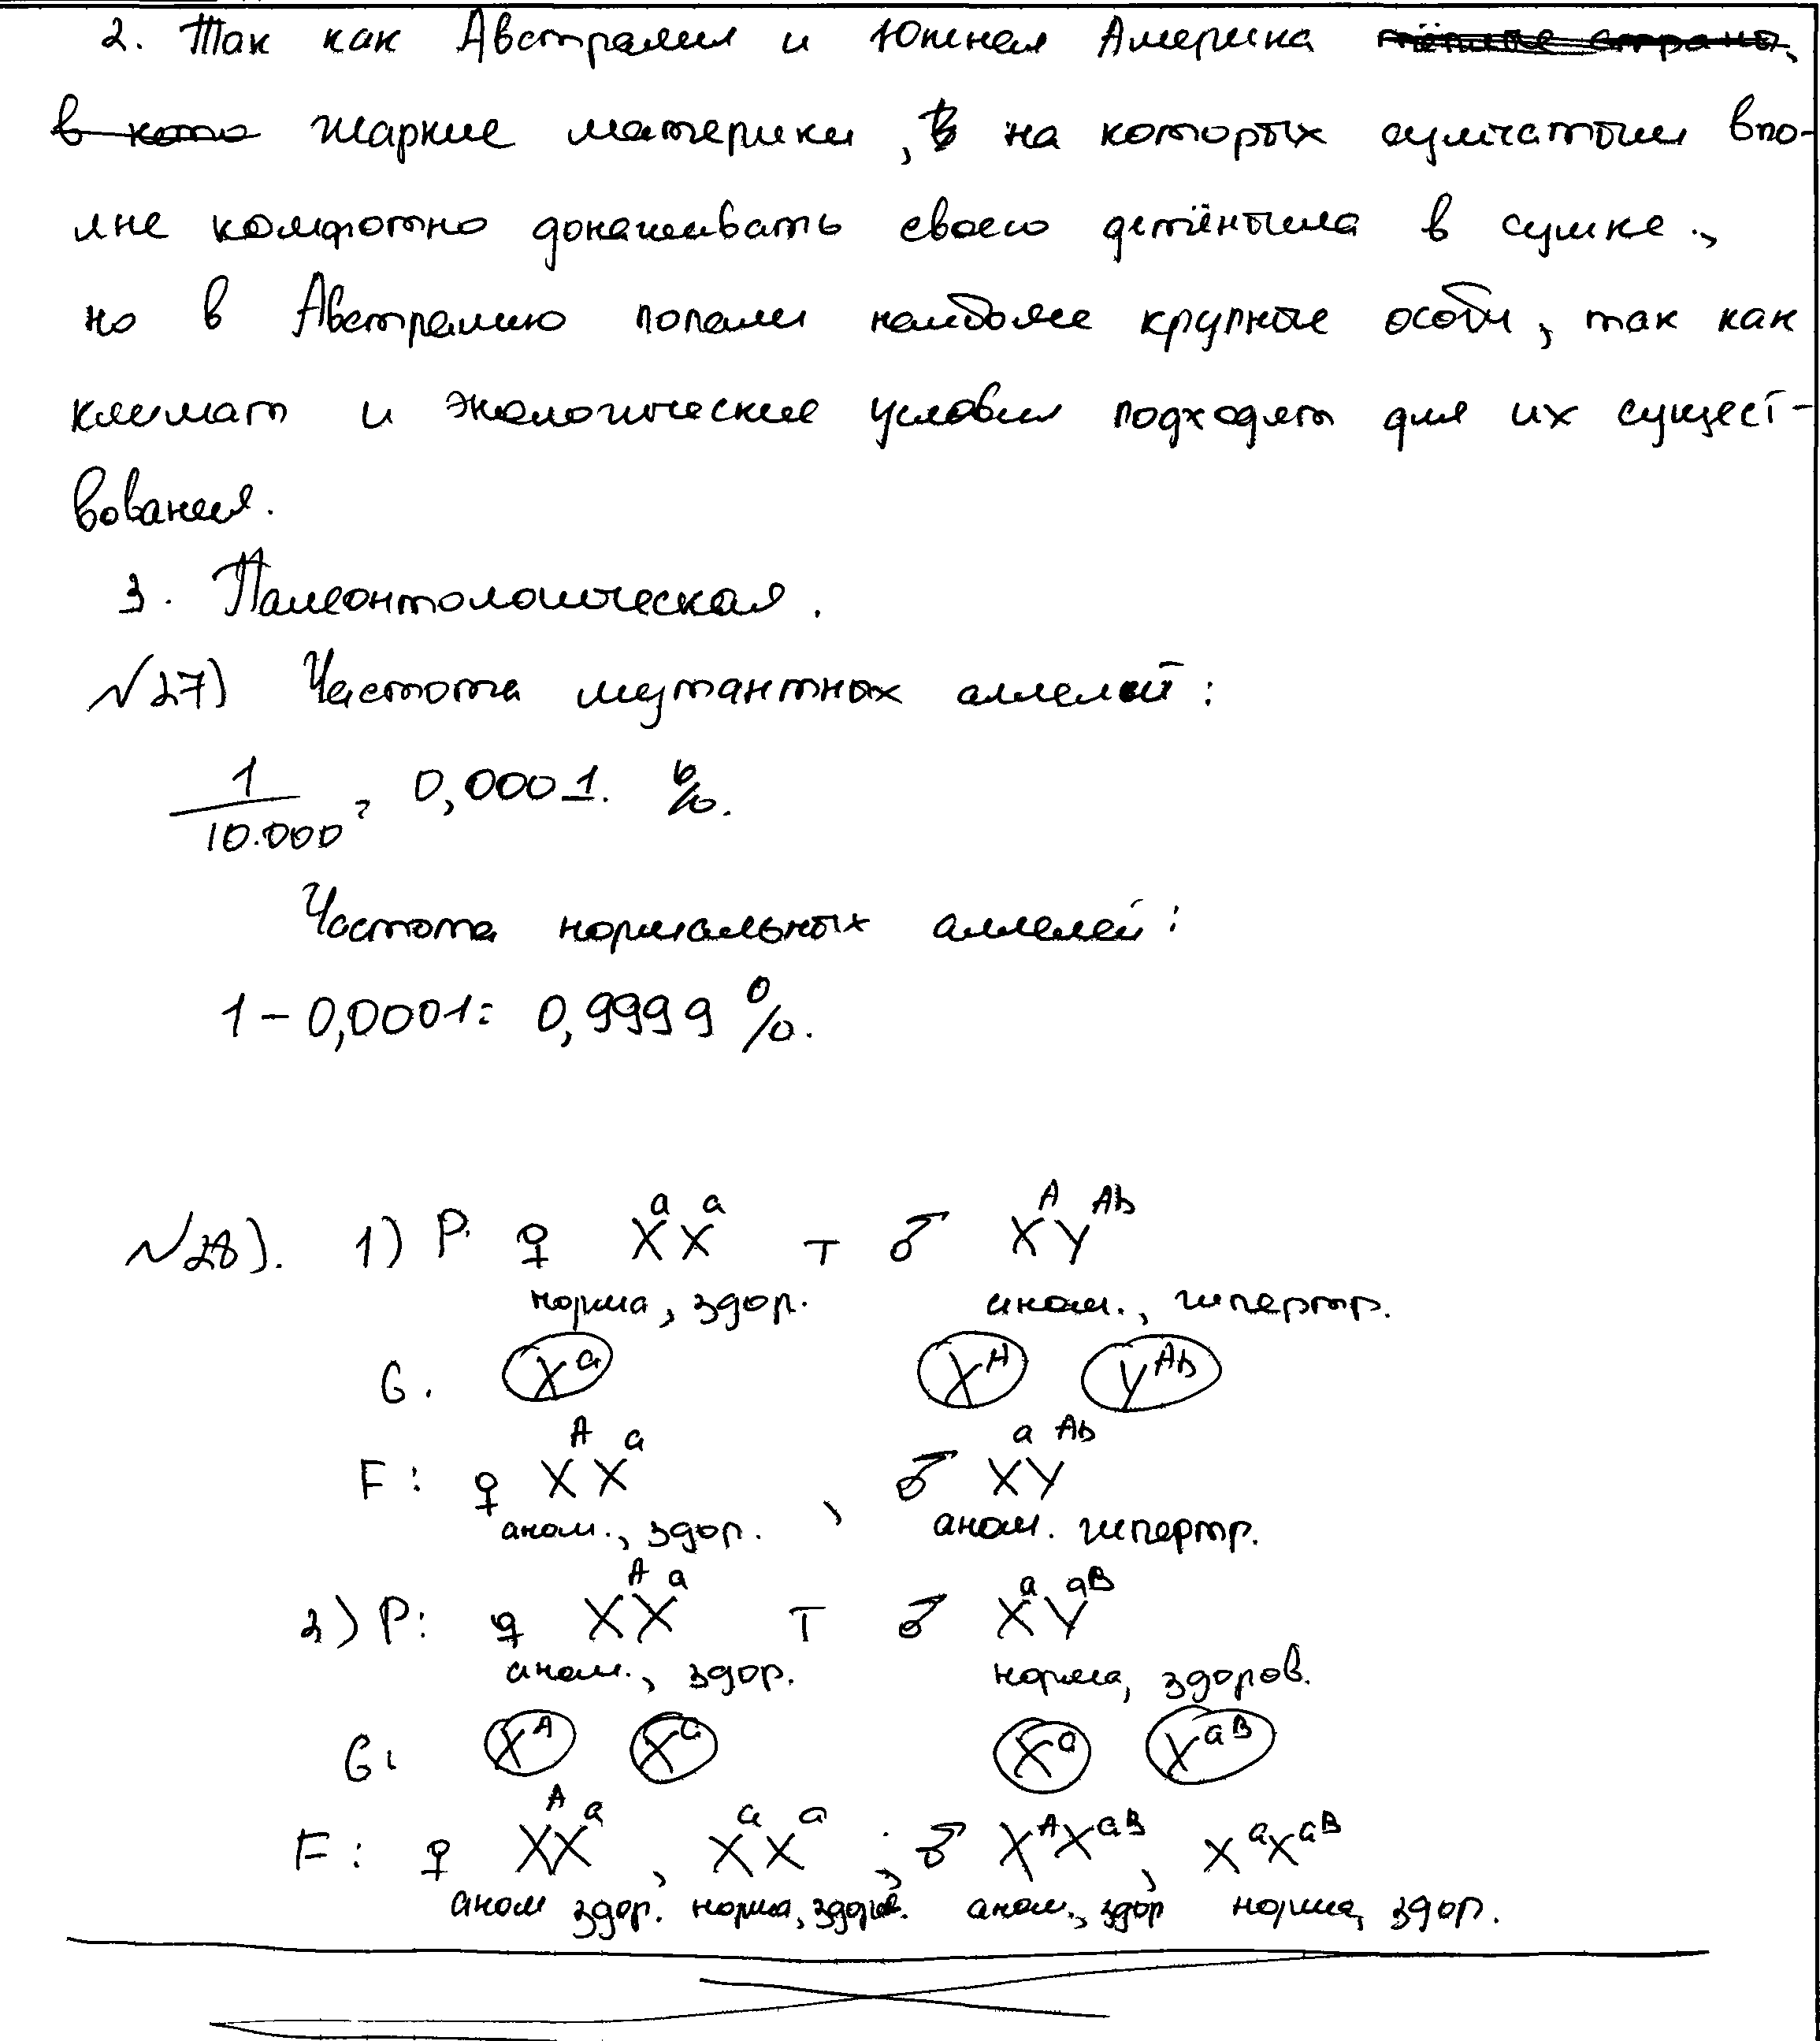 2. Так как Австралия и Южная Америка тёплые страны,
в кото жаркие материки, в на которых сумчатым впо-
лне комфотно донашивать своего детёныша в сумке.,
но в Австралию попали наиболее крупные особи, так как
климат и экологические условия подходят для их сущест-
вования.
3. Палеонтологическая.
№27) Частота мутантных аллелей:
1/10.000 = 0,0001. %.
Частота нормальных аллелей:
1 - 0,0001 = 0,9999 %.
№28). 1) P. ♀ XᵃXᵃ т ♂ XᴬYᴬᵇ
норма, здор. аном., гипертр.
G. Xᵃ Xᴬ Yᴬᵇ
F: ♀ XᴬXᵃ , ♂ XᵃYᴬᵇ
аном., здор. аном. гипертр.
2) P: ♀ XᴬXᵃ т ♂ XᵃYᵃᴮ
аном., здор. норма, здоров.
G: Xᴬ Xᵃ Xᵃ Xᵃᴮ
F: ♀ XᴬXᵃ, XᵃXᵃ ; ♂ XᴬXᵃᴮ, XᵃXᵃᴮ
аном здор. норма, здоров. аном., здор норма, здор.